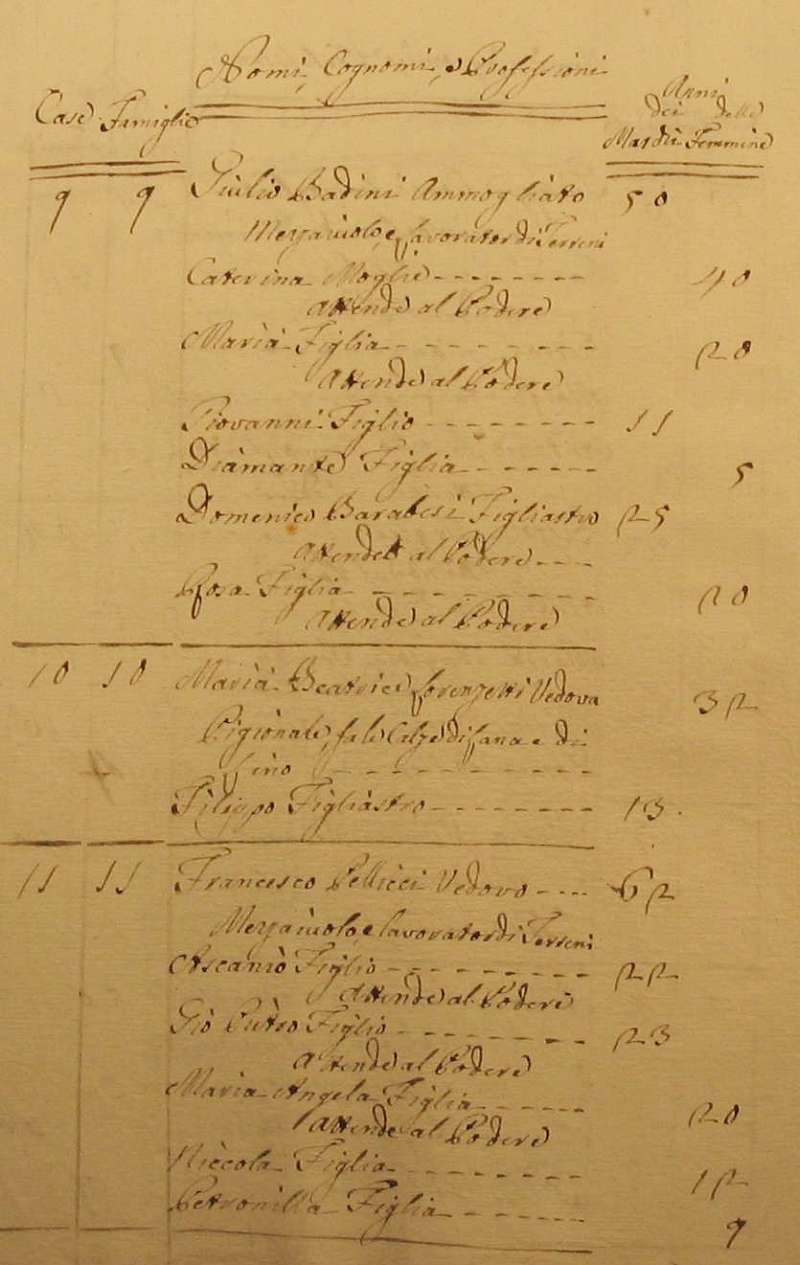 Nomi, Cognomi, e Professioni
Case Famiglie
Anni
dei delle
Maschi Femmine
9 9 Giulio Badini Ammogliato 50
Mezzaiolo, e lavorator di Terreni
Caterina Moglie 40
Attende al Podere
Maria Figlia 20
Attende al Podere
Giovanni Figlio 11
Diamante Figlia 5
Domenico Barabesi Figliastro 25
Attende al Podere
Rosa Figlia 20
Attende al Podere
10 10 Maria Beatrice Lorenzetti Vedova 32
Pigionale, fa le Calze di lana e di
lino
Filippo Figliastro 13
11 11 Francesco Pellicci Vedovo 62
Mezzaiolo, e lavorator di Terreni
Ascanio Figlio 22
Attende al Podere
Gio Pietro Figlio 23
Attende al Podere
Maria Angela Figlia 20
Attende al Podere
Niccola Figlia 12
Petronilla Figlia 9